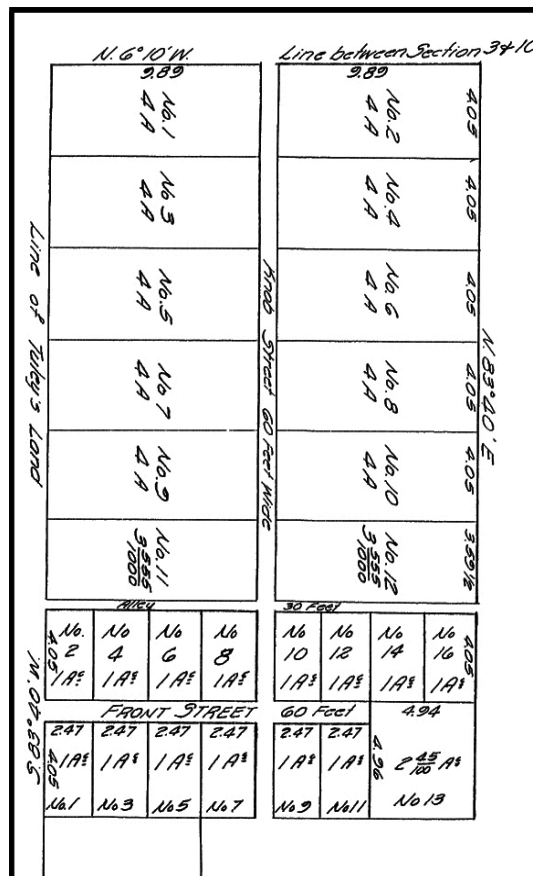 N. 6° 10' W.
Line between Section 3 & 10
9.89
9.89
No. 1
4 A
No. 2
4 A
4.05
No. 3
4 A
No. 4
4 A
4.05
No. 5
4 A
No. 6
4 A
4.05
No. 7
4 A
No. 8
4 A
4.05
No. 9
4 A
No. 10
4 A
4.05
No. 11
3 555/1000
No. 12
3 555/1000
3.59½
Line of Tuley's Land
Knob Street 60 Feet Wide
N. 83° 40' E
Alley
30 Feet
No. 2
1 As
4.05
No 4
1 As
No 6
1 As
No 8
1 As
No 10
1 As
No 12
1 As
No 14
1 As
No 16
1 As
4.05
FRONT STREET
60 Feet
4.94
2.47
2.47
2.47
2.47
2.47
2.47
4.05
1 As
1 As
1 As
1 As
1 As
1 As
4.96
2 45/100 As
No. 1
No 3
No 5
No 7
No 9
No 11
No 13